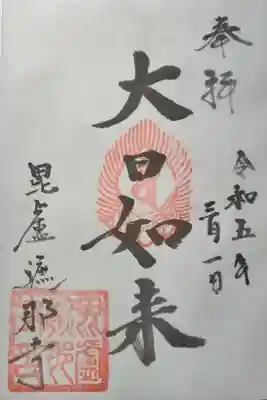 奉拝
令和五年
三月一日
大日如来
毘盧遮那寺